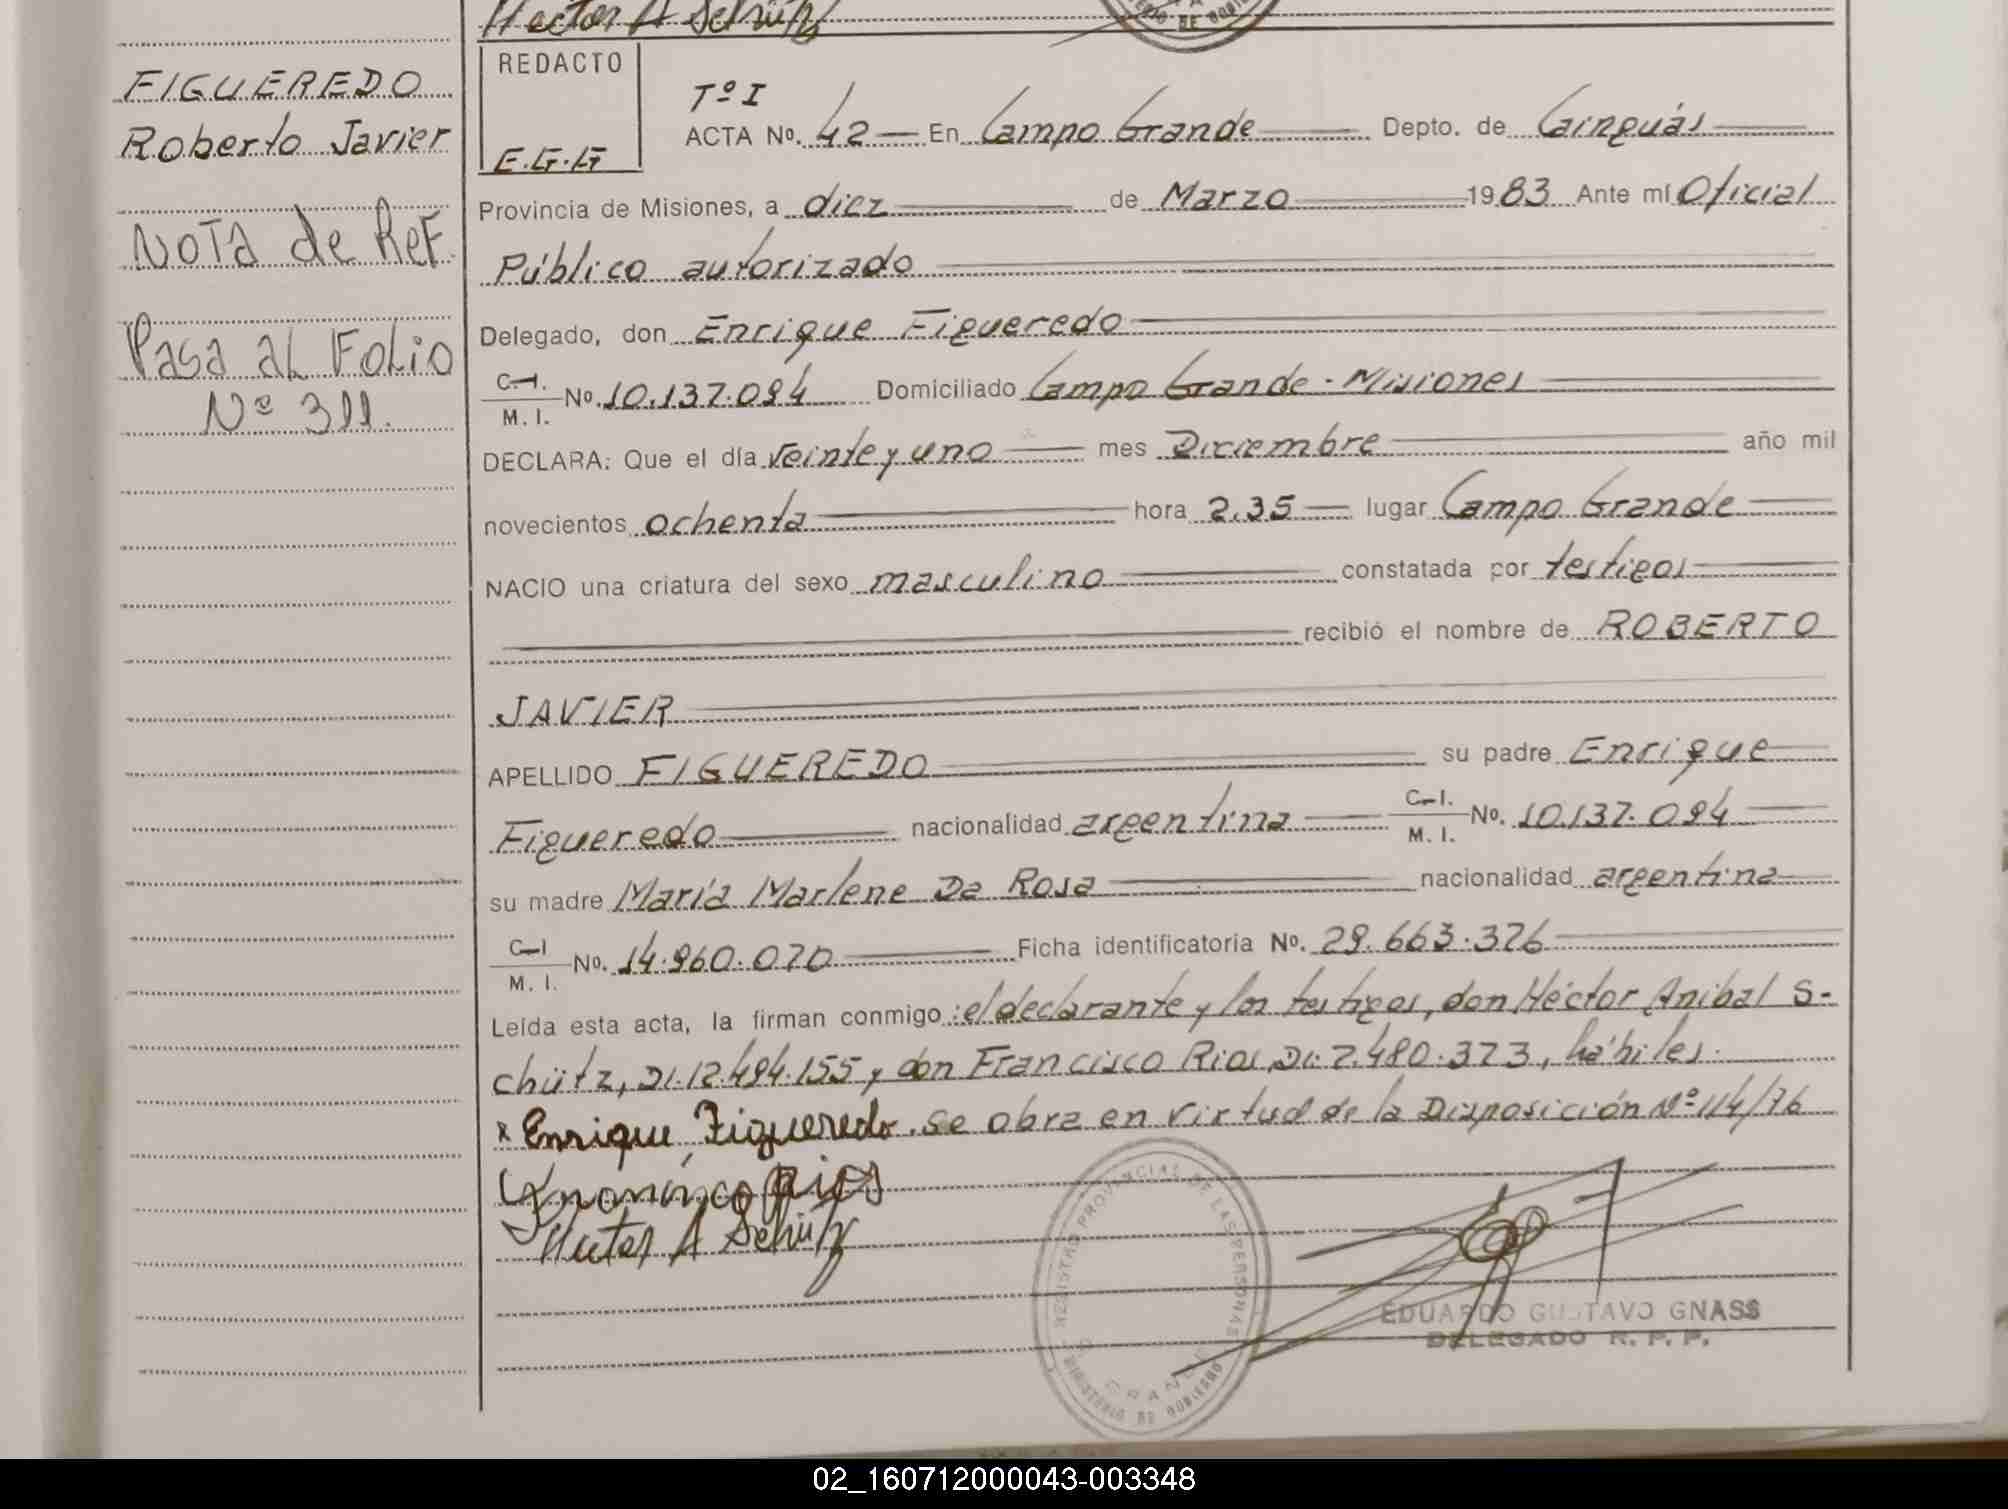 Hector A Schütz
FIGUEREDO
Roberto Javier
NOTA de ReF.
Pasa al Folio
Nº 311.
REDACTO
E.G.G
Tº I
ACTA Nº. 42 En Campo Grande Depto. de Cainguás
Provincia de Misiones, a diez de Marzo 1983 Ante mí Oficial
Público autorizado
Delegado, don Enrique Figueredo
C.I. M. I. No. 10.137.094 Domiciliado Campo Grande - Misiones
DECLARA: Que el día veinte y uno mes Diciembre año mil
novecientos ochenta hora 2.35 lugar Campo Grande
NACIO una criatura del sexo masculino constatada por testigos
recibió el nombre de ROBERTO
JAVIER
APELLIDO FIGUEREDO su padre Enrique
Figueredo nacionalidad argentina C.I. M. I. No. 10.137.094
su madre María Marlene Da Rosa nacionalidad argentina
C.I M. I. No. 14.960.070 Ficha identificatoria No. 29.663.376
Leída esta acta, la firman conmigo: el declarante y los testigos, don Héctor Anibal S-
chütz, DI. 12.494.155 y don Francisco Rios DI: 7.480.373, hábiles.
x Enrique Figueredo. se obra en virtud de la Disposición Nº 114/76
Francisco Rios
Hector A Schütz
REGISTRO PROVINCIAS DE LAS PERSONAS
GRANDE
MINISTERIO DE GOBIERNO
EDUARDO GUSTAVO GNASS
DELEGADO R. P. P.
02_160712000043-003348